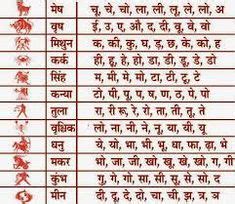 मेष चू, चे, चो, ला, ली, लू, ले, लो, अ
वृष ई, उ, ए, ओ, द, दी, वू, वे, वो
मिथुन क, की, कु, घ, ड़, छ, के, को, ह
कर्क ही, हू, हे, हो, डा, डी, डू, डे, डो
सिंह म, मी, मे, मो, टा, टी, टू, टे
कन्या टो, पी, पू, ष, ण, ठ, पे, पो
तुला रा, री रू, रे, रो, ता, ती, तू, ते
वृश्चिक लो, ना, नी, ने, नू, या, यी, यू
धनु ये, यो, भा, भी, भू, धा, फा, ढ़ा, भे
मकर भो, जा, जी, खी, खू, खे, खो, ग, गी
कुंभ गु, गे, गो, सा, सी, सू, से, सो, द
मीन दी, दू, दे, दो, चा, ची, झ, त्र, ञ